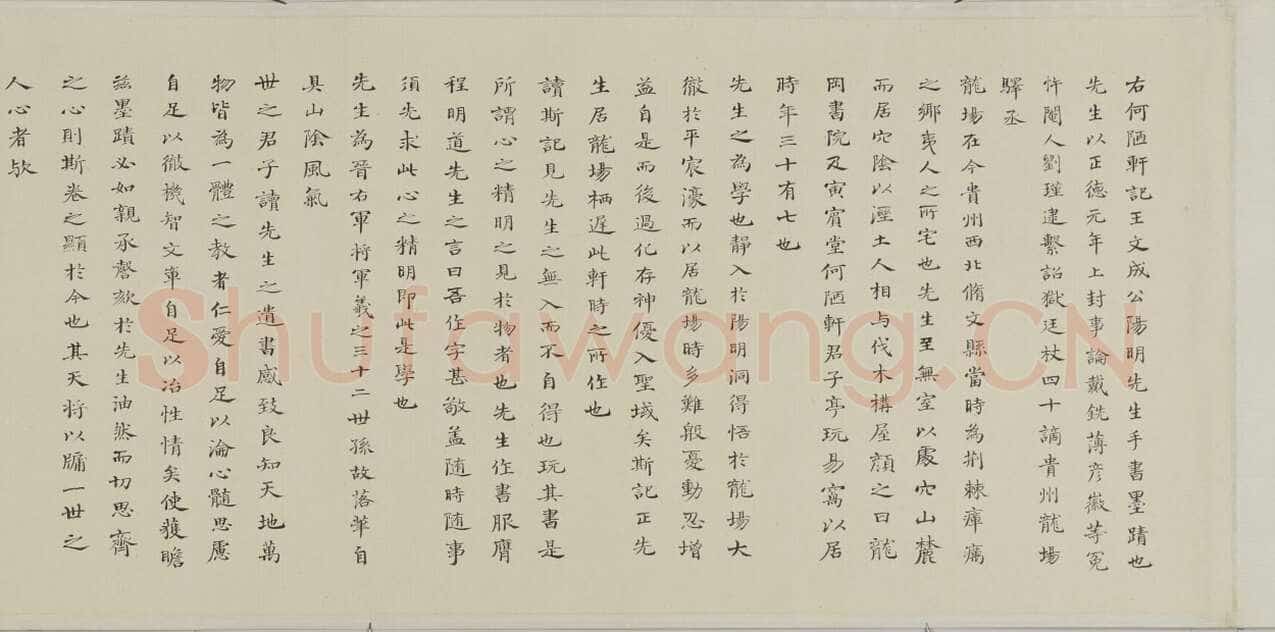 右何陋軒記王文成公陽明先生手書墨蹟也
先生以正德元年上封事論戴銑薄彥徽等冤
忤閹人劉瑾逮繫詔獄廷杖四十謫貴州龍場
驛丞
龍場在今貴州西北脩文縣當時為荊棘瘴癘
之鄉夷人之所宅也先生至無室以處穴山麓
而居穴陰以溼土人相与伐木構屋顏之曰龍
岡書院及寅賓堂何陋軒君子亭玩易窩以居
時年三十有七也
先生之為學也靜入於陽明洞得悟於龍場大
徹於平宸濠而以居龍場時多難殷憂動忍增
益自是而後過化存神優入聖域矣斯記正先
生居龍場栖遲此軒時之所作也
讀斯記見先生之無入而不自得也玩其書是
所謂心之精明之見於物者也先生作書服膺
程明道先生之言曰吾作字甚敬蓋隨時隨事
須先求此心之精明即此是學也
先生為晉右軍將軍羲之三十二世孫故落華自
具山陰風氣
世之君子讀先生之遺書感致良知天地萬
物皆為一體之教者仁愛自足以淪心髓思慮
自足以徹機智文章自足以冶性情矣使獲瞻
茲墨蹟必如親承謦欬於先生油然而切思齊
之心則斯卷之顯於今也其天將以牖一世之
人心者歟
Shufawang.CN